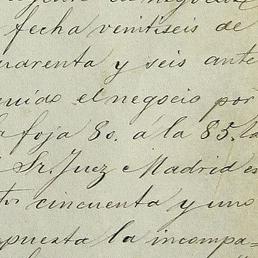 fecha veintiseis de
uarenta y seis ante
el negocio por
foja 80. á la 85. la
Sr. Juez Madrid es
tos cincuenta y uno
puesta la incompa=